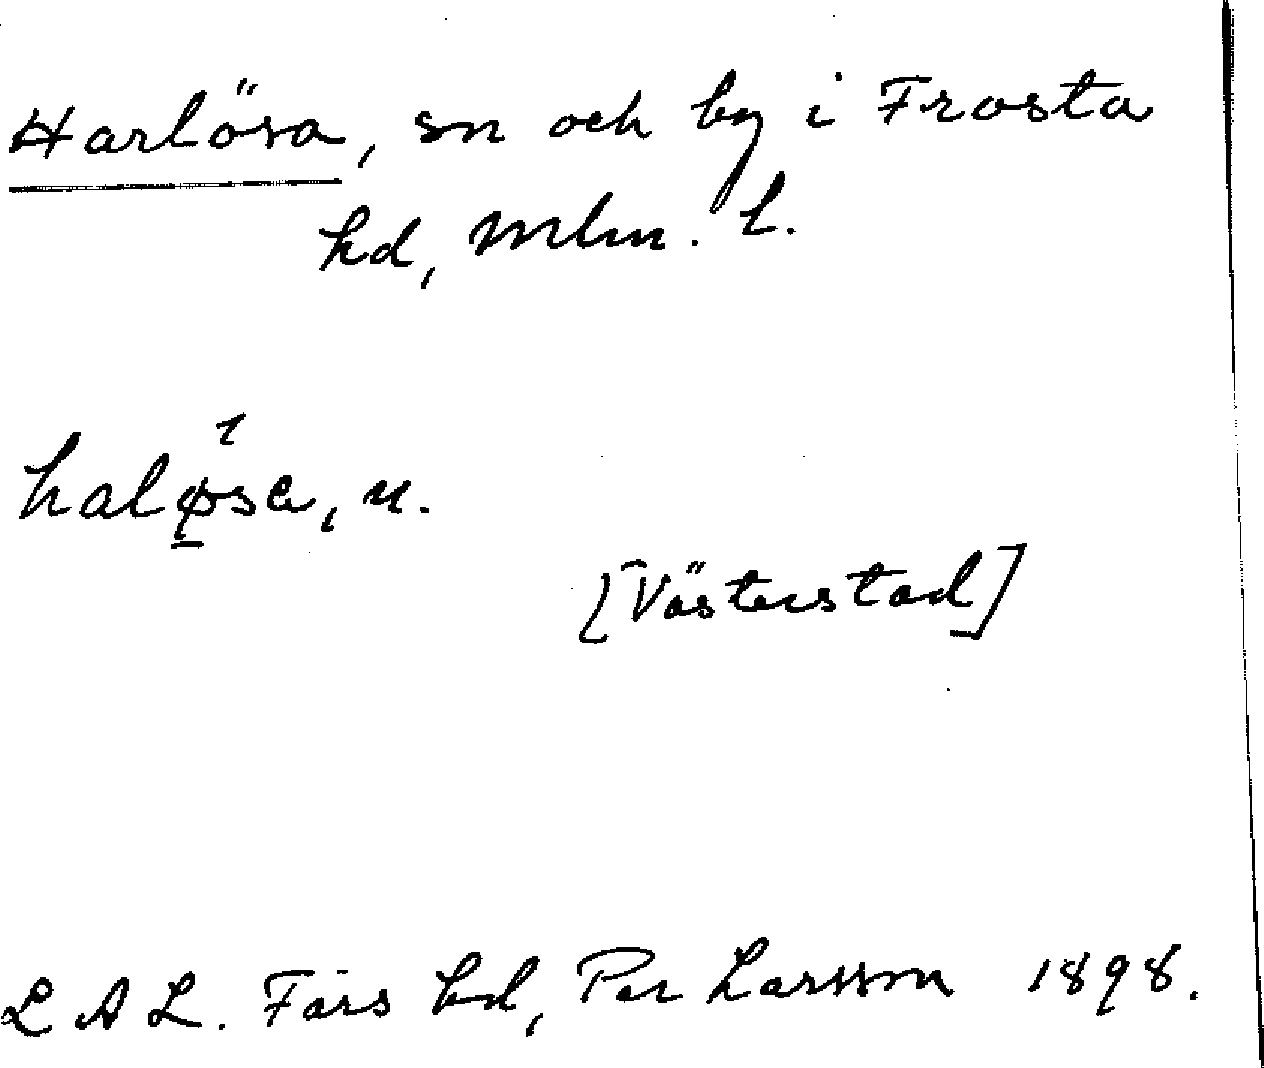 Harlösa, sn och by i Frosta
hd, Mlm. l.
haløsa, n.
[Västerstad]
L A L. Färs hd, Per Larsson 1898.